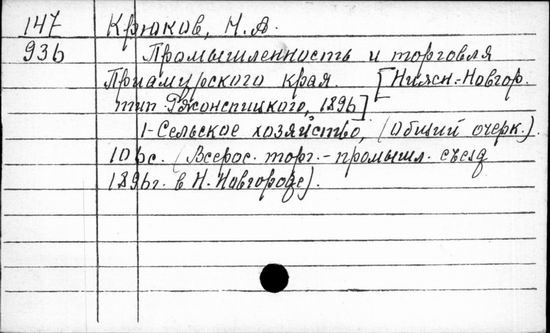 147 Крюков, Н. А.
936 Промышленность и торговля
Приамурского края [Нижн.-Новгор.
тип. Ржонсницкого, 1896]
1-Сельское хозяйство, (Общий очерк.)
106с. (Всерос. торг.-промышл. съезд
1896г. в Н.-Новгороде).